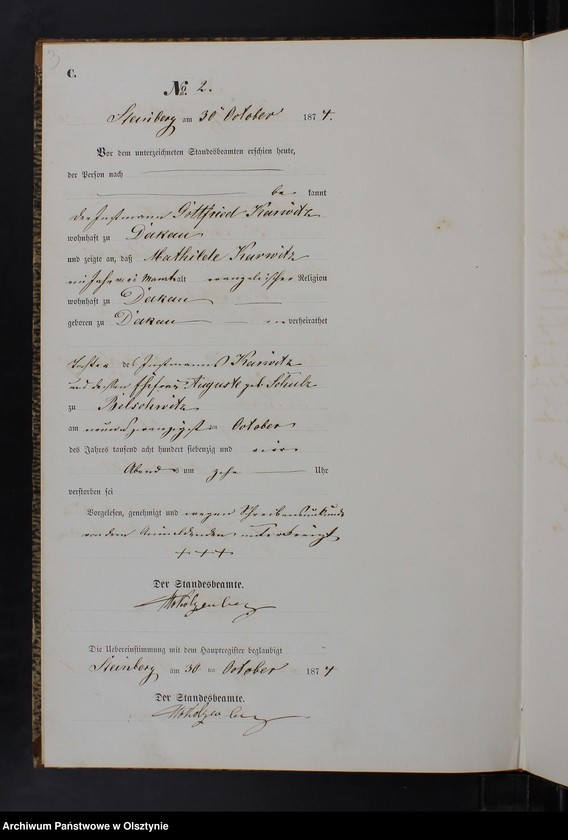 C.
No. 2.
Steinberg am 30 October 1874.
Vor dem unterzeichneten Standesbeamten erschien heute,
der Person nach
be kannt
Gottfried Karwitz
wohnhaft zu Dakau
und zeigte an, daß Mathilde Karwitz
alt evangelischer Religion
wohnhaft zu Dakau
geboren zu Dakau verheirathet
Tochter des Instmanns Karwitz
und dessen Ehefrau Auguste geb. Schulz
zu Belschwitz
am October
des Jahres tausend acht hundert siebenzig und vier
Abends um zehn Uhr
verstorben sei
Vorgelesen, genehmigt und wegen Schreibensunkunde
von dem Anmeldenden unterkreuzt
+++
Der Standesbeamte.
Die Uebereinstimmung mit dem Hauptregister beglaubigt
Steinberg am 30 ten October 1874
Der Standesbeamte.
Archiwum Państwowe w Olsztynie